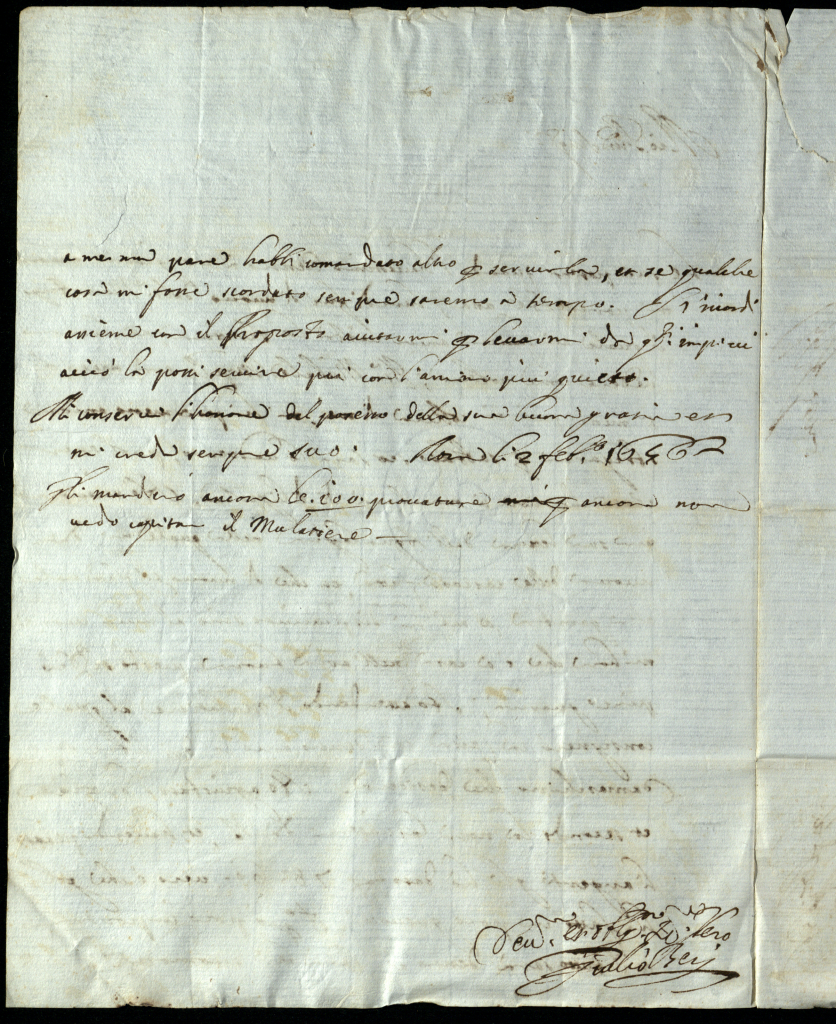 a me non pare habbi comandato altro p servirla, et se qualche
cosa mi fosse scordato sempre saremo a tempo. Si ricordi
assieme con il Proposto aiutarmi p levarmi da q.ti impicci
acciò la possi servire poi con l'animo più quieto.
Mi conservi l'honore del possesso della sua buona gratia et
mi creda sempre suo. Roma li 2 feb.o
Gli manderò ancora le. 100. provature ancora non
vedo capitar il Mulatiere —
Giulio